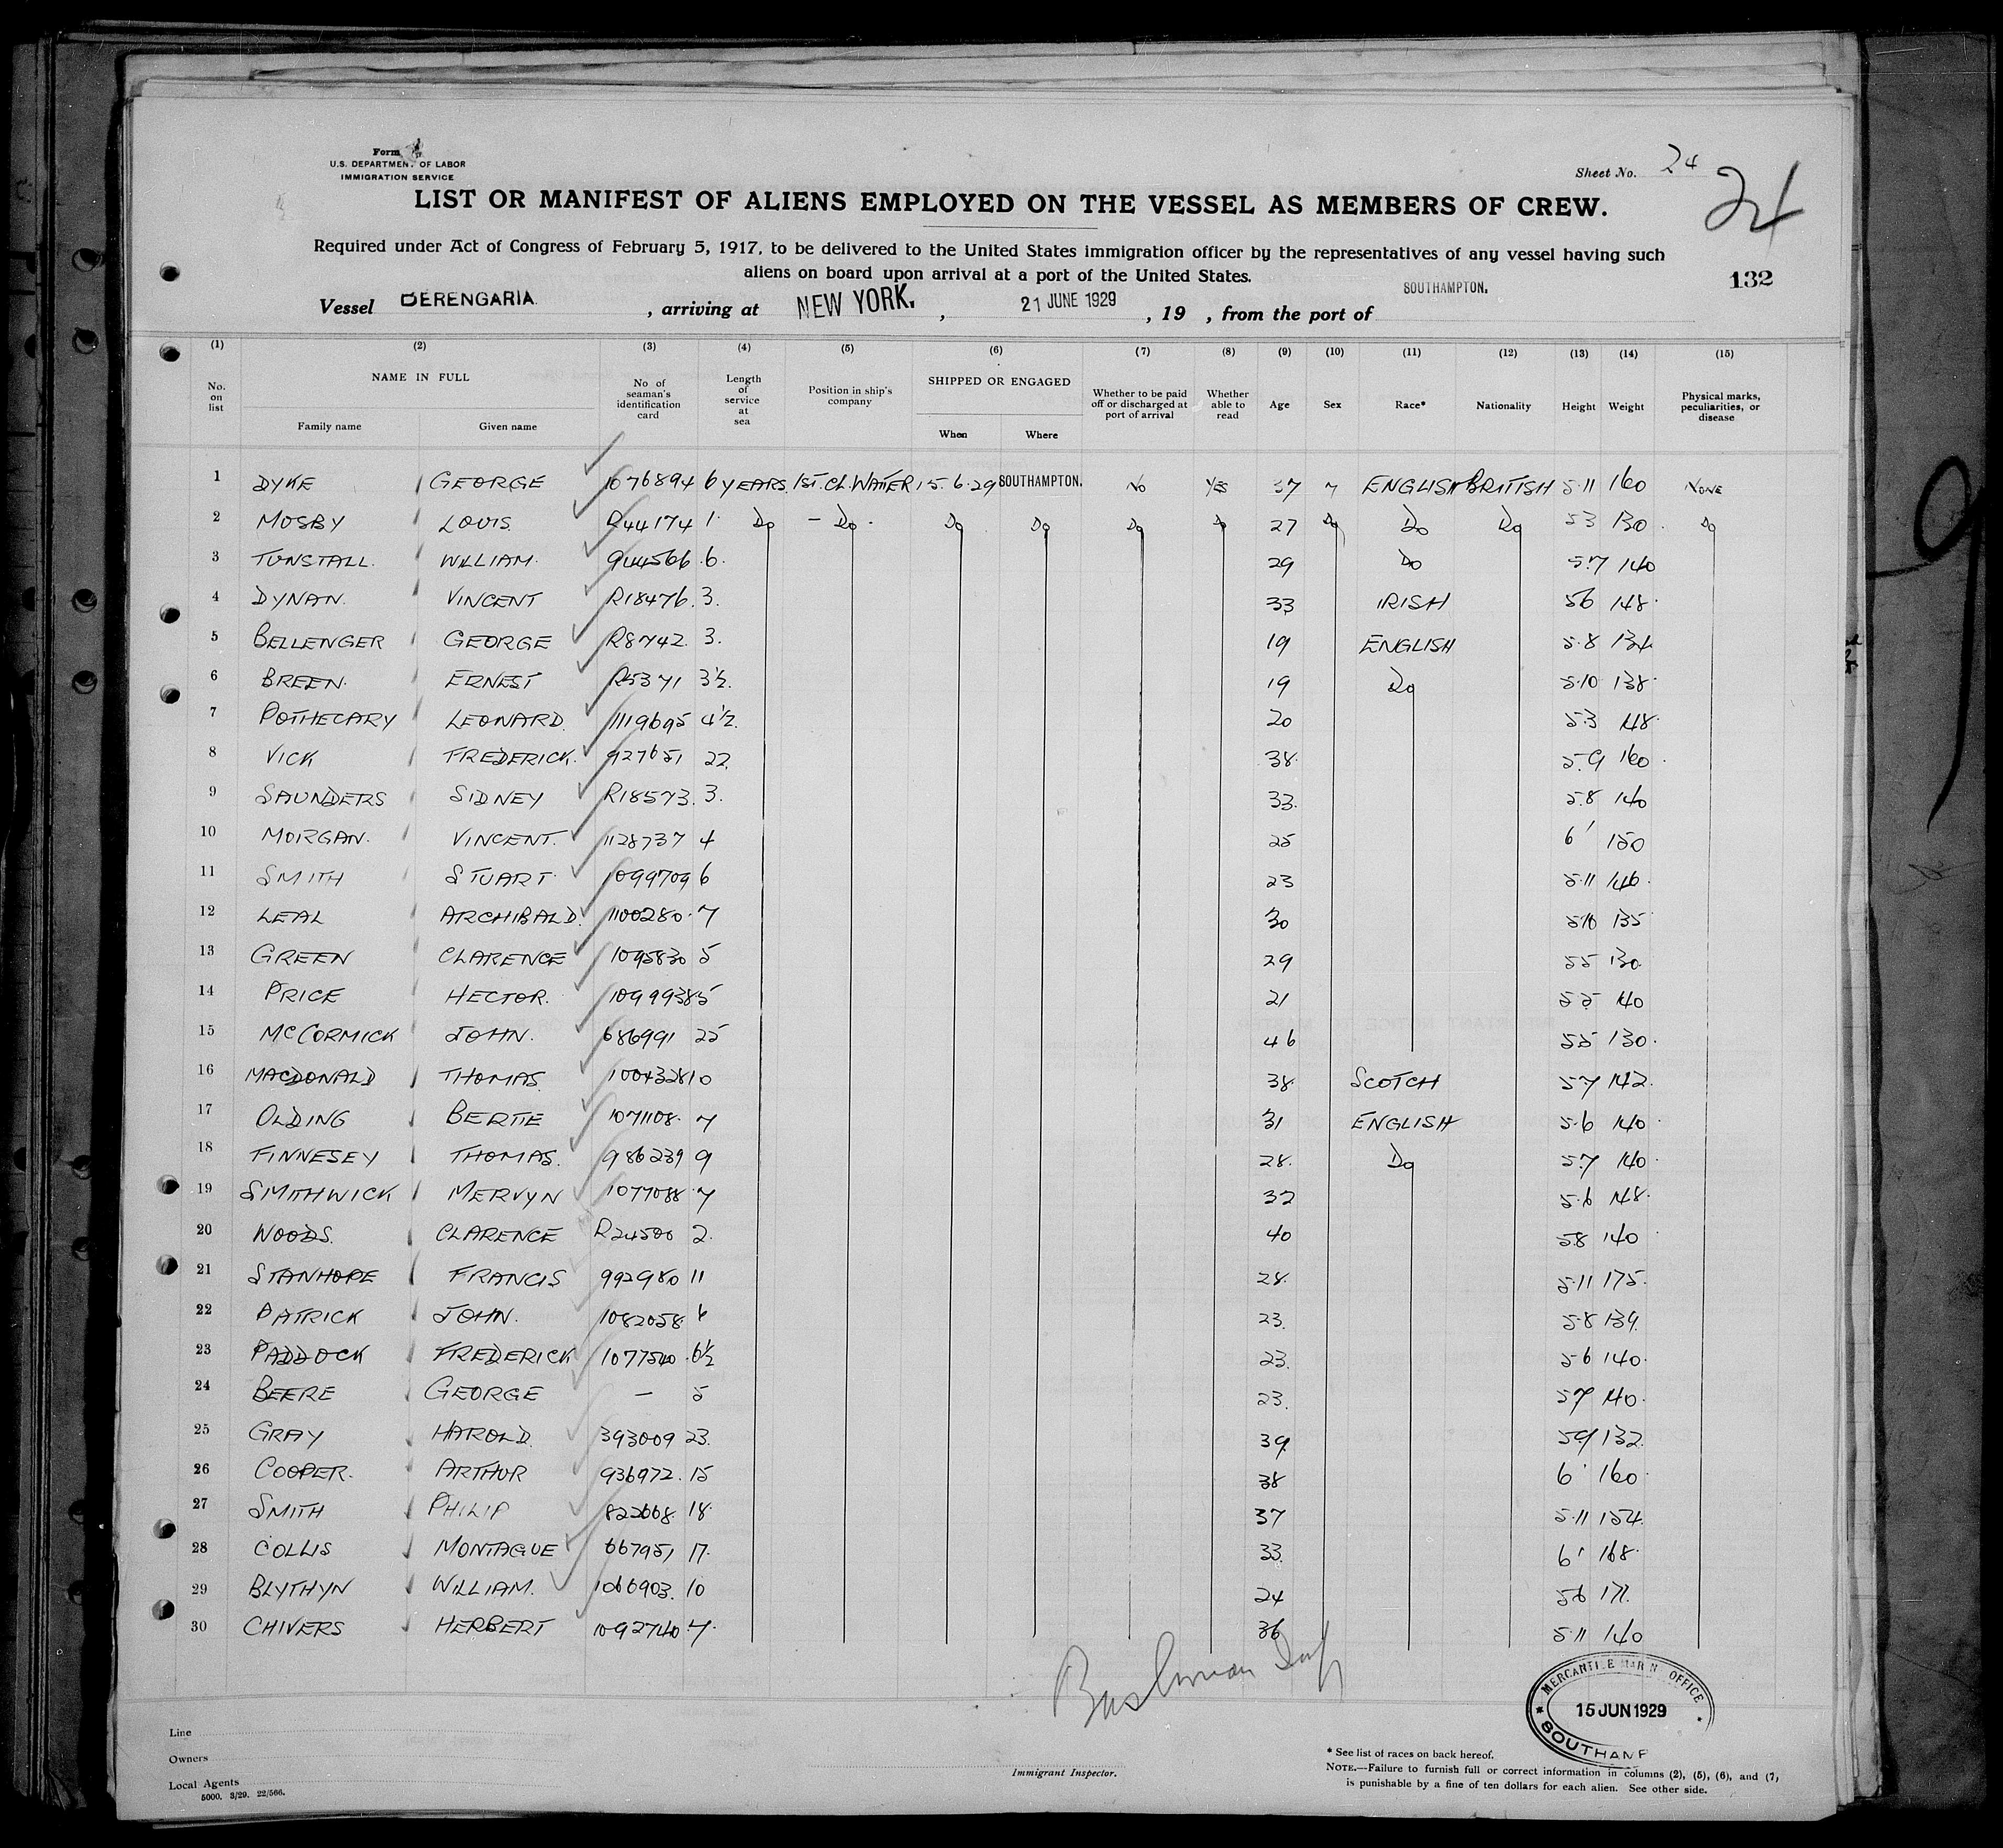 Form
U.S. DEPARTMENT OF LABOR
IMMIGRATION SERVICE
Sheet No. 24
24
LIST OR MANIFEST OF ALIENS EMPLOYED ON THE VESSEL AS MEMBERS OF CREW.
Required under Act of Congress of February 5, 1917, to be delivered to the United States immigration officer by the representatives of any vessel having such
aliens on board upon arrival at a port of the United States.
132
Vessel BERENGARIA. , arriving at NEW YORK. , 21 JUNE 1929 , 19 , from the port of SOUTHAMPTON.
(1) (2) (3) (4) (5) (6) (7) (8) (9) (10) (11) (12) (13) (14) (15)
No. on list NAME IN FULL Family name Given name No of seaman's identification card Length of service at sea Position in ship's company SHIPPED OR ENGAGED When Where Whether to be paid off or discharged at port of arrival Whether able to read Age Sex Race* Nationality Height Weight Physical marks, peculiarities, or disease
1 DYKE GEORGE 1076894 6 YEARS. 1ST. CL. WAITER 15.6.29 SOUTHAMPTON. NO YES 37 ENGLISH BRITISH 5.11 160 NONE
2 MOSBY LOUIS R44174 1. Do - Do. Do Do Do Do 27 Do Do Do 53 130. Do
3 TUNSTALL. WILLIAM. 944566 .6. 29 Do 5.7 140
4 DYNAN. VINCENT R18476. 3. 33 IRISH 56 148.
5 BELLENGER GEORGE R8742. 3. 19 ENGLISH 5.8 134
6 BREEN. ERNEST R5371 3½. 19 Do 5.10 138.
7 POTHECARY LEONARD. 1119695 4½. 20 5.3 148.
8 VICK FREDERICK. 927651 22. 38. 5.9 160.
9 SAUNDERS SIDNEY R18573. 3. 33. 5.8 140
10 MORGAN. VINCENT. 1128737 4 25 6' 150
11 SMITH STUART. 1099709 6 23 5.11 146.
12 LEAL ARCHIBALD. 1100280. 7 30 5.10 135
13 GREEN CLARENCE 1095830 5 29 55 130.
14 PRICE HECTOR. 1099938 5 21 55 140
15 McCORMICK JOHN. 686991 25 46 55 130.
16 MACDONALD THOMAS. 1004328 10 38. SCOTCH 57 142.
17 OLDING BERTIE 1071108. 7 31 ENGLISH 5.6 140.
18 FINNESEY THOMAS. 986239 9 28. Do 5.7 140.
19 SMITHWICK MERVYN 1077088 7 32 5.6 148.
20 WOODS. CLARENCE R24500 2. 40 58 140
21 STANHOPE FRANCIS 992980 11 28. 5.11 175.
22 PATRICK JOHN. 1082058. 6 23. 5.8 139.
23 PADDOCK FREDERICK 1077540 .6½ 23. 5.6 140.
24 BEERE GEORGE — 5 23. 57 140.
25 GRAY HAROLD. 393009 23. 39. 59 132.
26 COOPER. ARTHUR 936972. 15 38 6' 160.
27 SMITH PHILIP 822668. 18. 37 5.11 154.
28 COLLIS MONTAGUE 667951 17. 33. 6' 168.
29 BLYTHYN WILLIAM. 1066903. 10 24 56 171.
30 CHIVERS HERBERT 1092740 .7. 36 5.11 140
MERCANTILE MARINE OFFICE
15 JUN 1929
Line
Owners
Local Agents
5000. 3/29. 22/566.
Immigrant Inspector.
* See list of races on back hereof.
NOTE.—Failure to furnish full or correct information in columns (2), (5), (6), and (7,
is punishable by a fine of ten dollars for each alien. See other side.